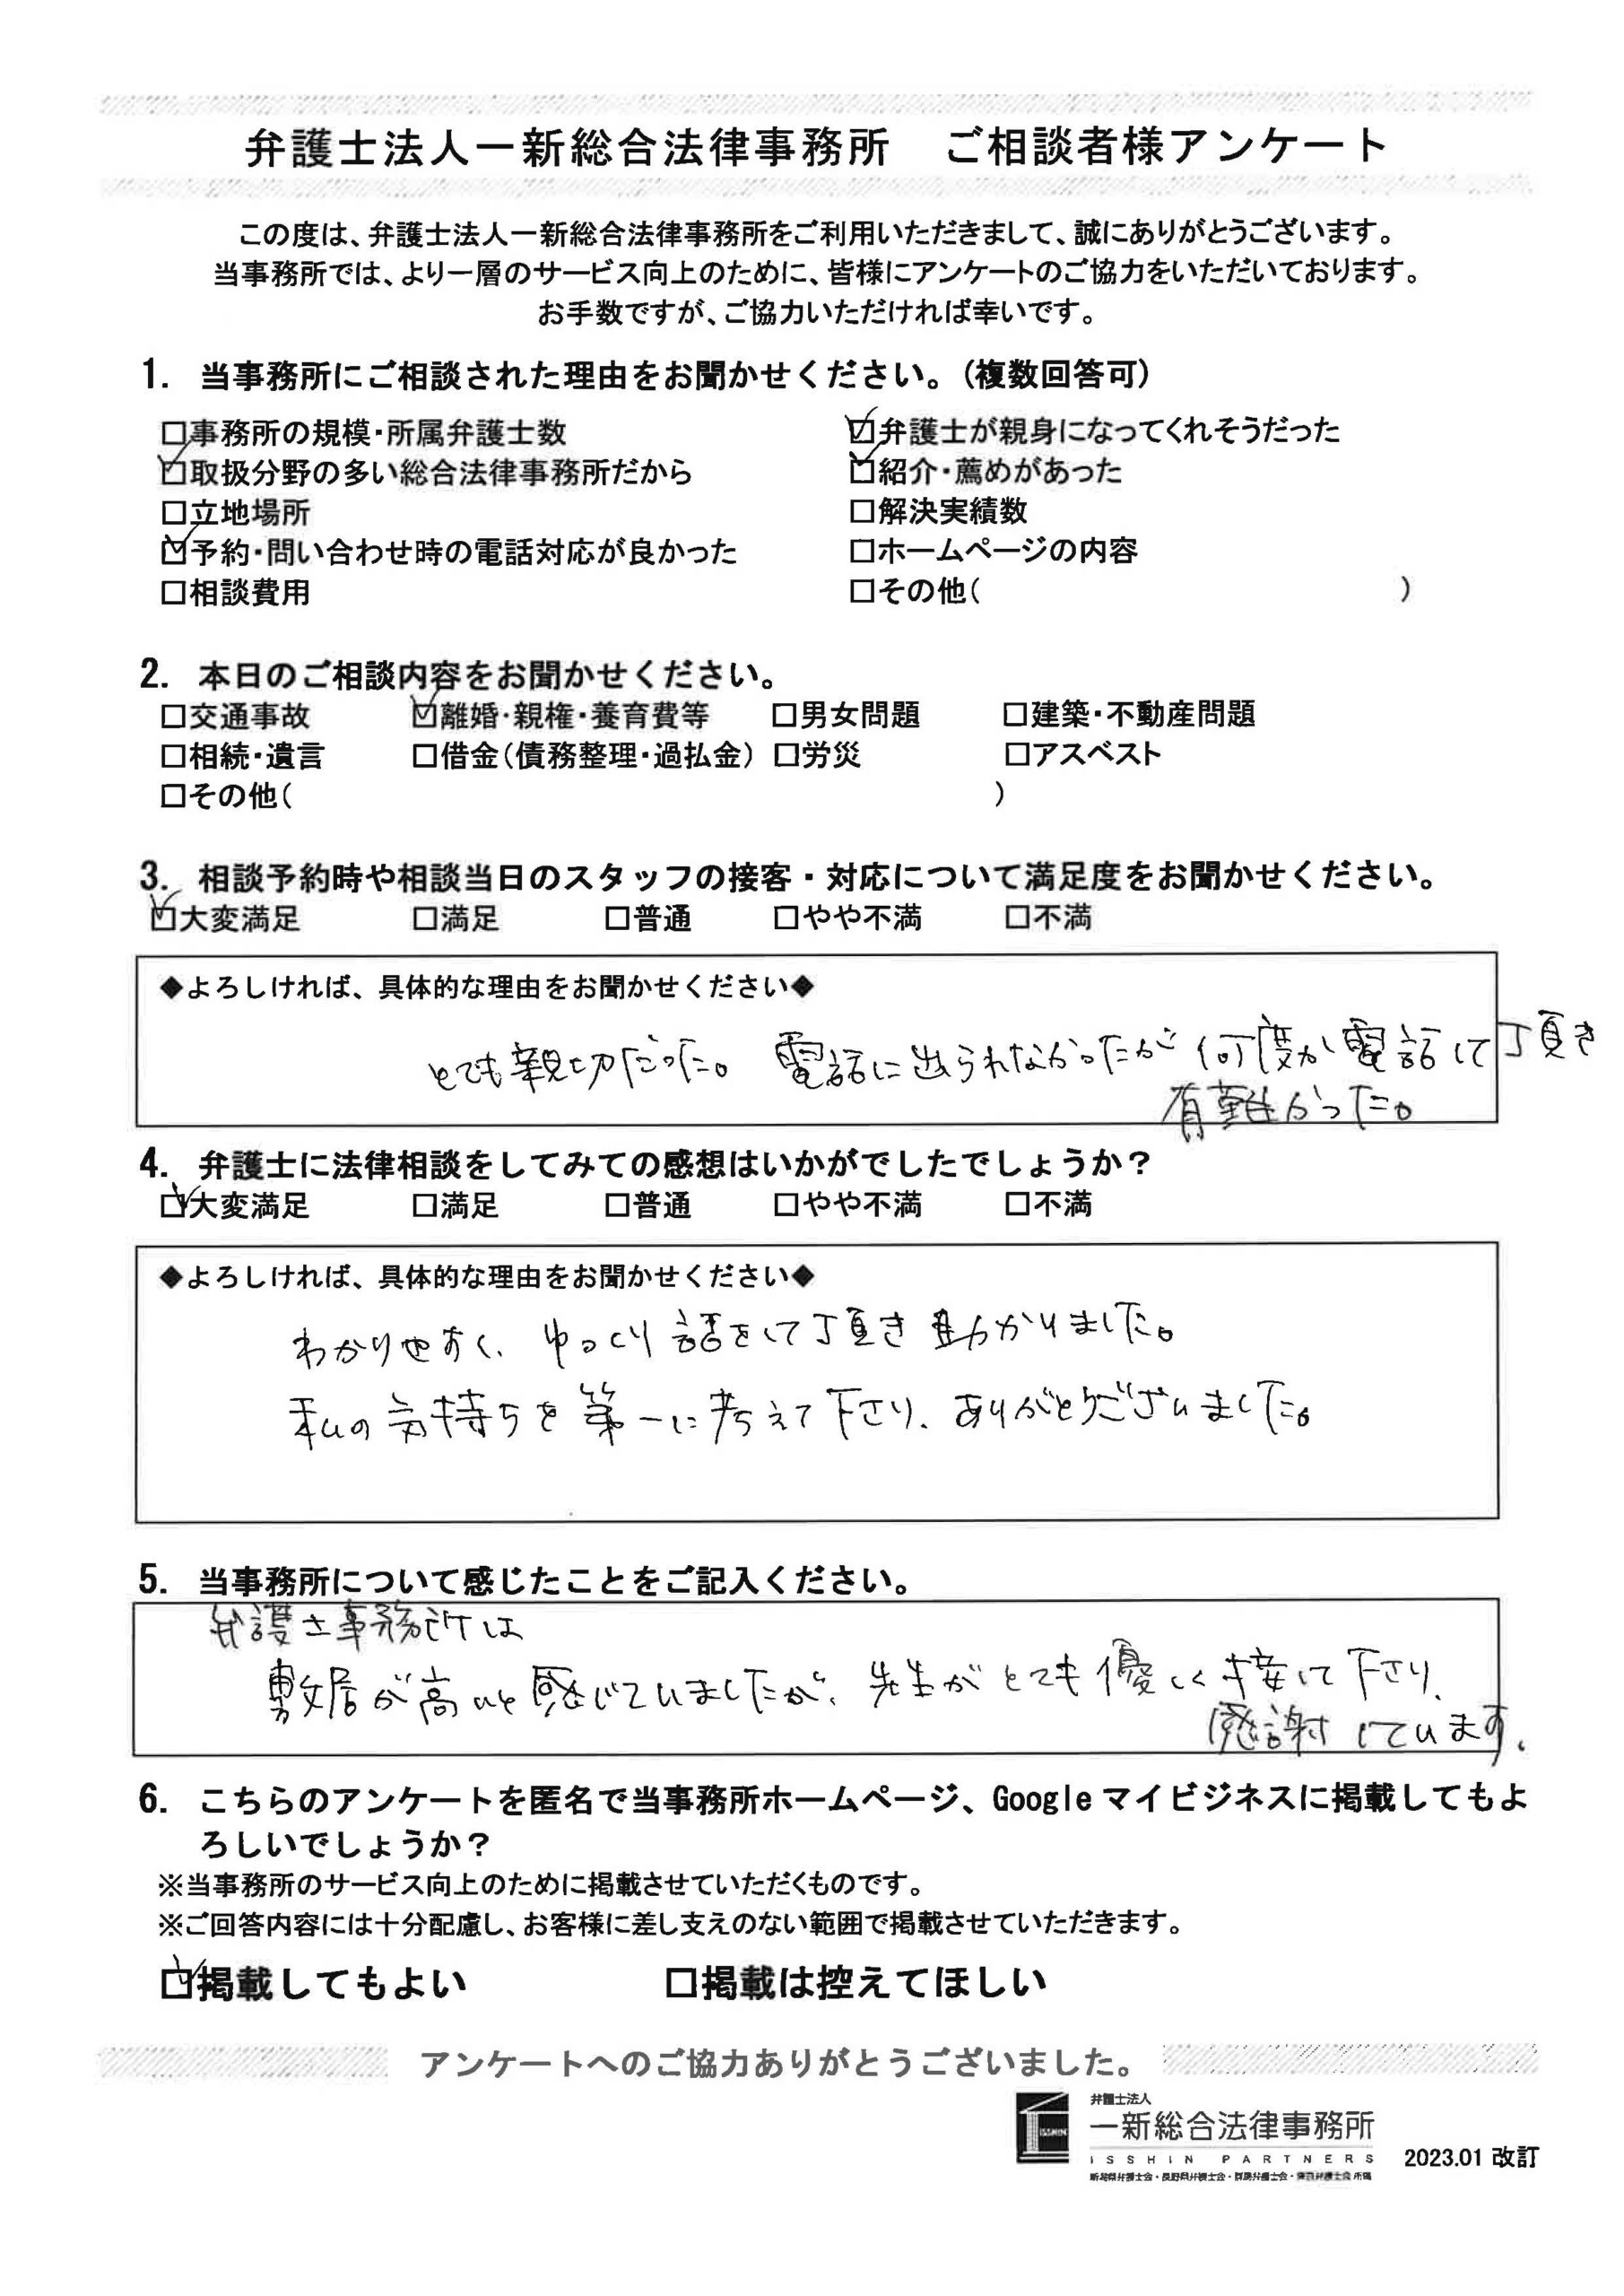 弁護士法人一新総合法律事務所　ご相談者様アンケート
この度は、弁護士法人一新総合法律事務所をご利用いただきまして、誠にありがとうございます。
当事務所では、より一層のサービス向上のために、皆様にアンケートのご協力をいただいております。
お手数ですが、ご協力いただければ幸いです。
1.　当事務所にご相談された理由をお聞かせください。（複数回答可）
□事務所の規模・所属弁護士数　☑弁護士が親身になってくれそうだった
☑取扱分野の多い総合法律事務所だから　☑紹介・薦めがあった
□立地場所　□解決実績数
☑予約・問い合わせ時の電話対応が良かった　□ホームページの内容
□相談費用　□その他（　）
2.　本日のご相談内容をお聞かせください。
□交通事故　☑離婚・親権・養育費等　□男女問題　□建築・不動産問題
□相続・遺言　□借金（債務整理・過払金）　□労災　□アスベスト
□その他（　）
3.　相談予約時や相談当日のスタッフの接客・対応について満足度をお聞かせください。
☑大変満足　□満足　□普通　□やや不満　□不満
◆よろしければ、具体的な理由をお聞かせください◆
とても親切だった。電話に出られなかったが何度か電話して頂き
有難かった。
4.　弁護士に法律相談をしてみての感想はいかがでしたでしょうか？
☑大変満足　□満足　□普通　□やや不満　□不満
◆よろしければ、具体的な理由をお聞かせください◆
わかりやすく、ゆっくり話をして頂き助かりました。
私の気持ちを第一に考えて下さり、ありがとうございました。
5.　当事務所について感じたことをご記入ください。
弁護士事務所は
敷居が高いと感じていましたが、先生がとても優しく接して下さり、
感謝しています。
6.　こちらのアンケートを匿名で当事務所ホームページ、Googleマイビジネスに掲載してもよ
ろしいでしょうか？
※当事務所のサービス向上のために掲載させていただくものです。
※ご回答内容には十分配慮し、お客様に差し支えのない範囲で掲載させていただきます。
☑掲載してもよい　□掲載は控えてほしい
アンケートへのご協力ありがとうございました。
弁護士法人
ISSHIN 一新総合法律事務所
ISSHIN PARTNERS
新潟県弁護士会・長野県弁護士会・群馬弁護士会・東京弁護士会 所属
2023.01 改訂